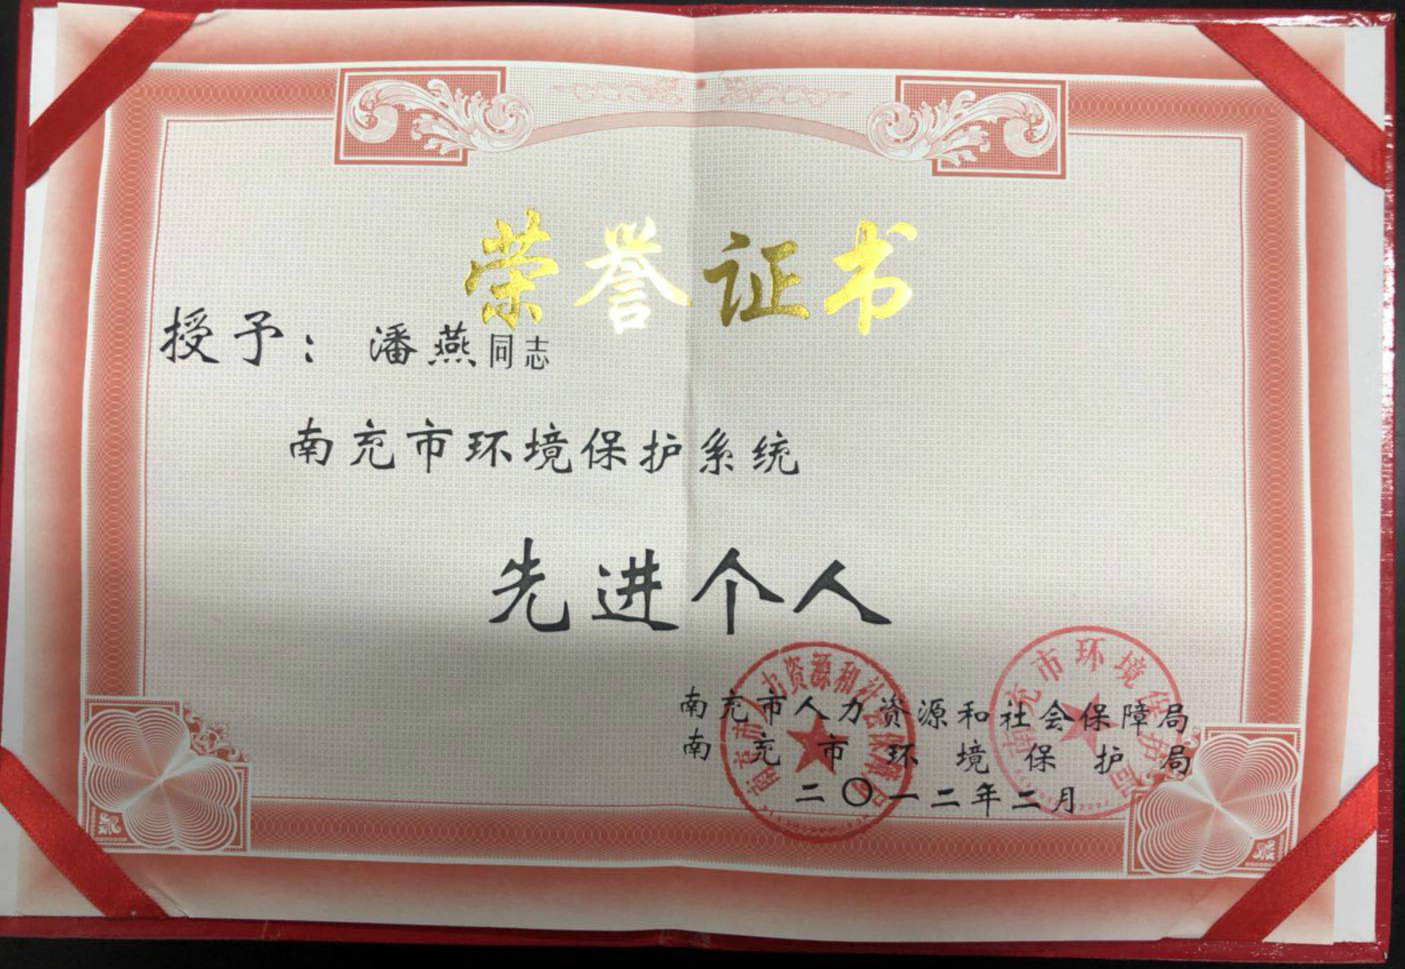 荣誉证书
授予：潘燕同志
南充市环境保护系统
先进个人
南充市人力资源和社会保障局
南充市环境保护局
二〇一二年二月
南充市人力资源和社会保障局
南充市环境保护局